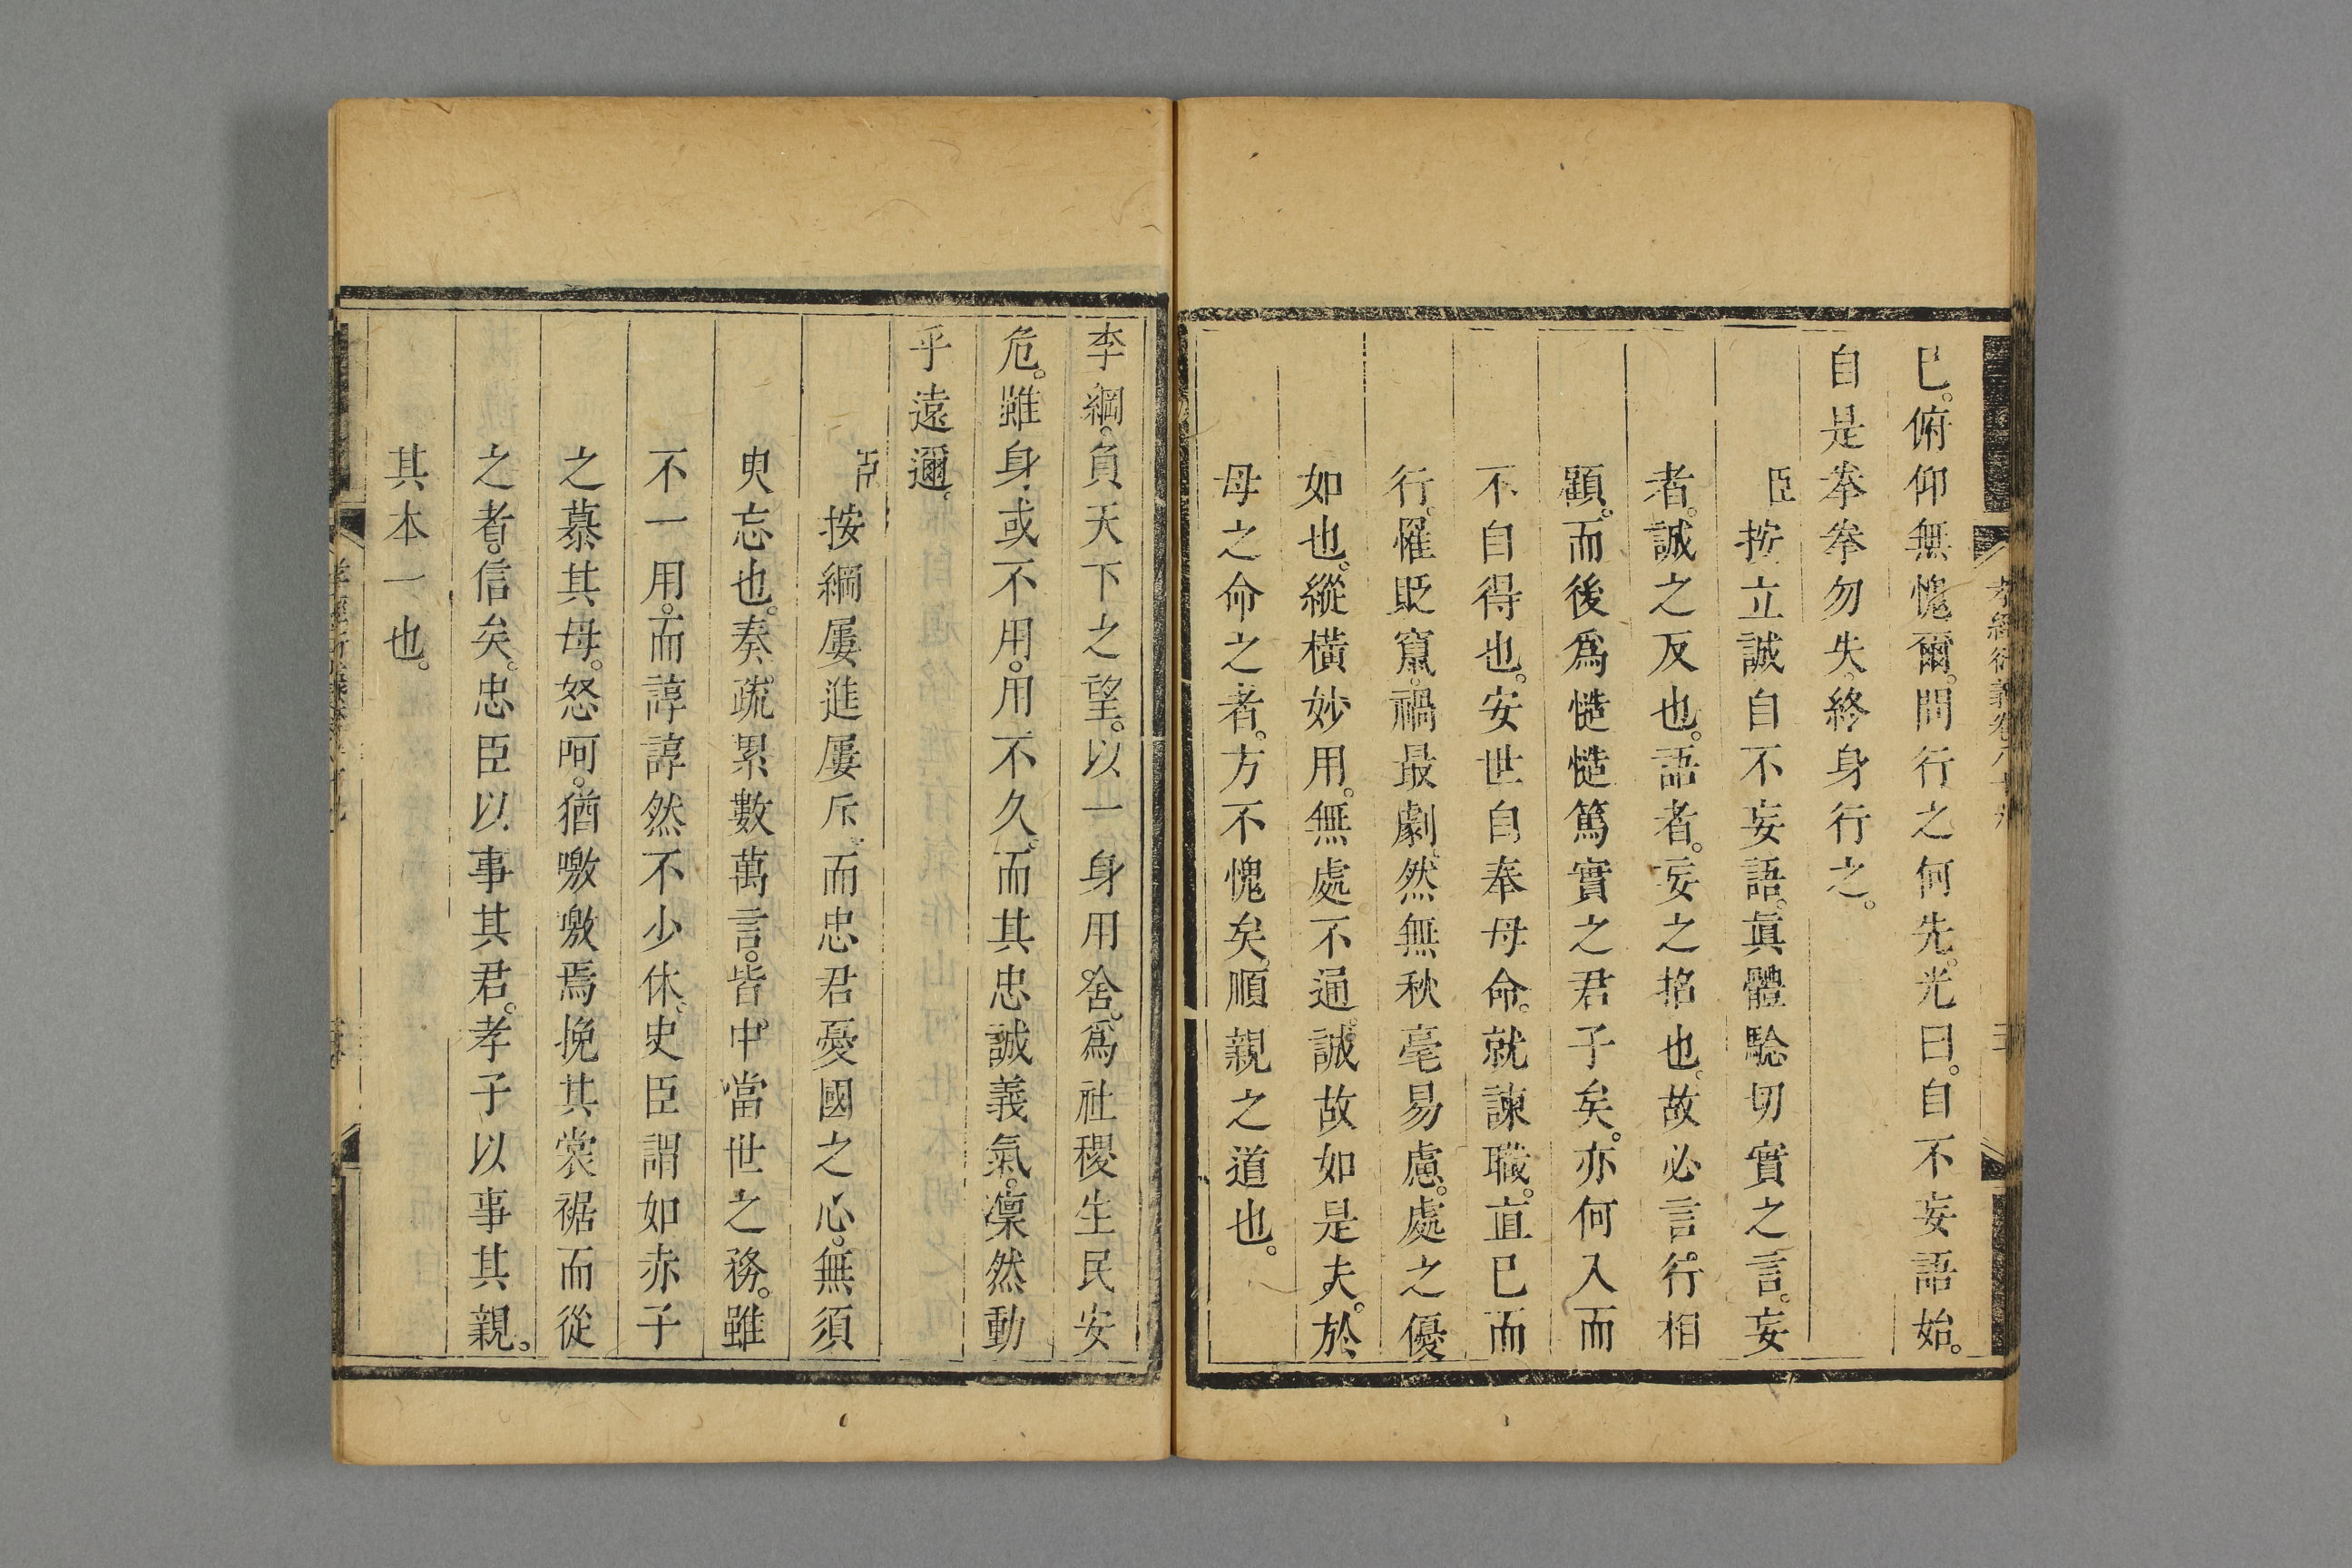 已。俯仰無愧爾。問行之何先。光曰。自不妄語始。
自是拳拳勿失。終身行之。
臣按立誠自不妄語。眞體驗切實之言。妄
者。誠之反也。語者。妄之招也。故必言行相
顧。而後爲慥慥篤實之君子矣。亦何入而
不自得也。安世自奉母命。就諫職。直已而
行。罹貶竄。禍最劇。然無秋毫易慮。處之優
如也。縱橫妙用。無處不通。誠故如是夫。於
母之命之者。方不愧矣。順親之道也。
李綱。負天下之望。以一身用舍。爲社稷生民安
危。雖身或不用。用不久。而其忠誠義氣。凜然動
乎遠邇。
臣按綱屢進屢斥。而忠君憂國之心。無須
臾忘也。奏疏累數萬言。皆中當世之務。雖
不一用。而諄諄然不少休。史臣謂如赤子
之慕其母。怒呵。猶噭噭焉挽其裳裾而從
之者。信矣。忠臣以事其君。孝子以事其親。
其本一也。